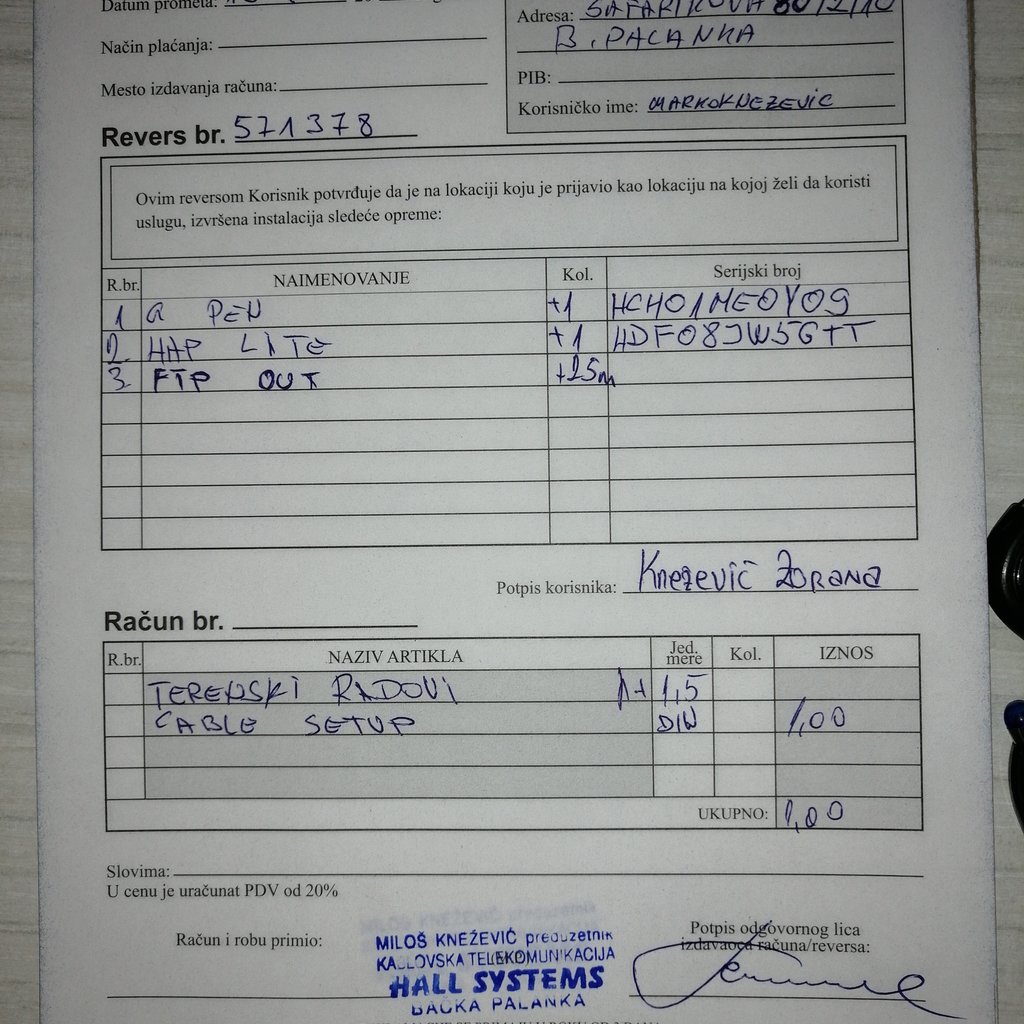 Datum prometa:
Adresa: SAFARIKOVA 80/2/10
Način plaćanja:
B. PALANKA
PIB:
Mesto izdavanja računa:
Korisničko ime: MARKOKNEZEVIC
Revers br. 571378
Ovim reversom Korisnik potvrđuje da je na lokaciji koju je prijavio kao lokaciju na kojoj želi da koristi
uslugu, izvršena instalacija sledeće opreme:
R.br. NAIMENOVANJE Kol. Serijski broj
1 G PEN +1 HCH01ME0Y09
2. HAP LITE +1 HDF08JW5GTT
3. FTP OUT +25m
Potpis korisnika: Knezević Zorana
Račun br.
R.br. NAZIV ARTIKLA Jed. mere Kol. IZNOS
TERENSKI RADOVI 1+ 1,5
CABLE SETUP DIN 1,00
UKUPNO: 1,00
Slovima:
U cenu je uračunat PDV od 20%
Račun i robu primio:
MILOŠ KNEŽEVIĆ preduzetnik
KABLOVSKA TELEKOMUNIKACIJA
HALL SYSTEMS
BAČKA PALANKA
Potpis odgovornog lica
izdavaoca računa/reversa: